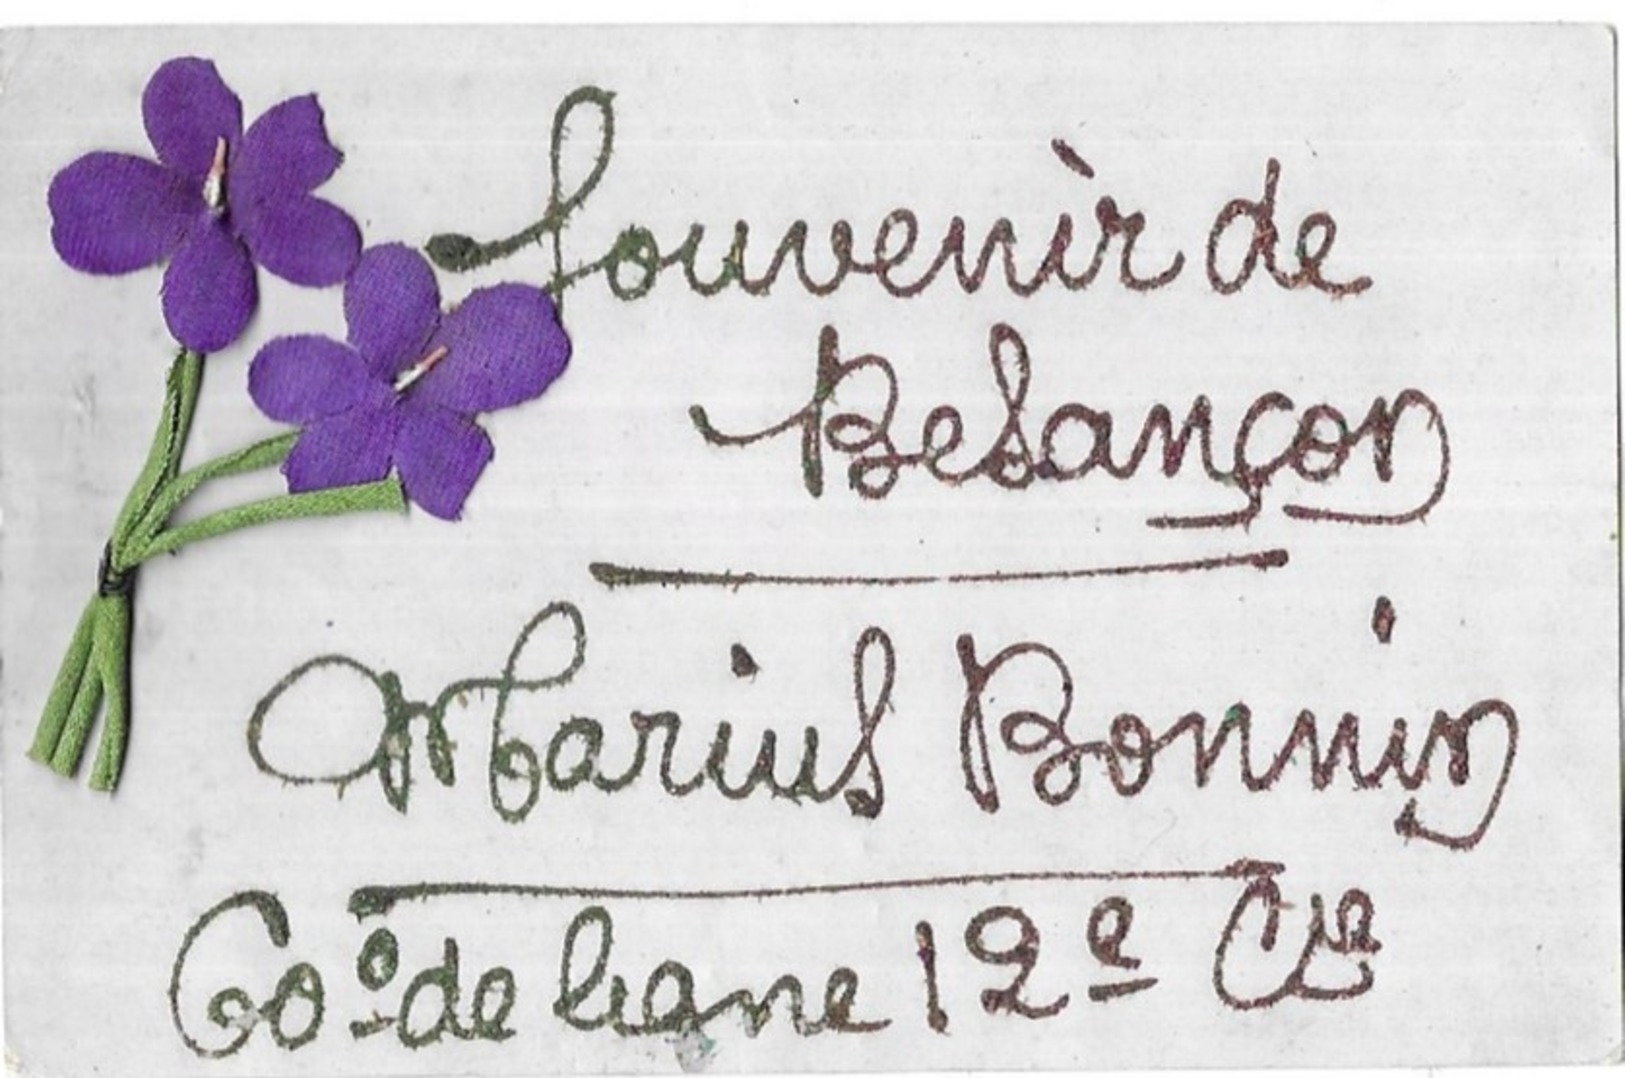 Souvenir de
Besançon
Marius Bonnin
60e de ligne 12e Cie